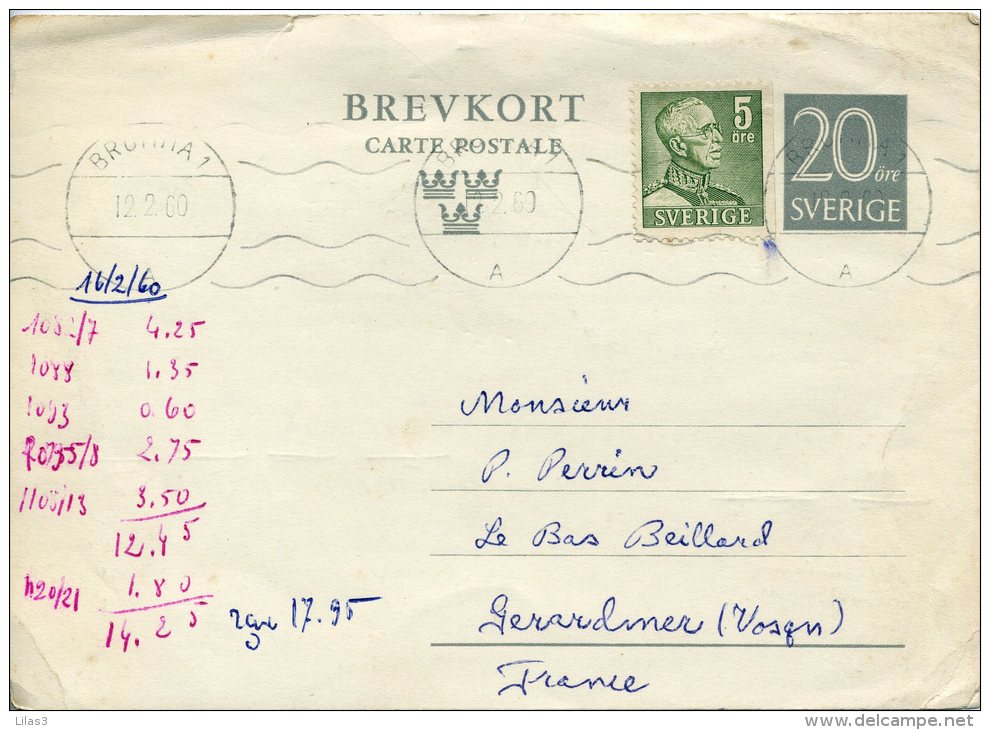 BREVKORT
CARTE POSTALE
5
öre
SVERIGE
20
öre
SVERIGE
BROMMA 1
12.2.60
A
12.2.60
A
BROMMA 1
12.2.60
A
16/2/60
1082/7 4.25
1088 1.35
1093 0.60
1095/8 2.75
1108/13 3.50
12.45
1120/21 1.80
14.25
17.95
Monsieur
P. Perrin
Le Bas Beillard
Gerardmer (Vosges)
France
Lilas3
www.delcampe.net